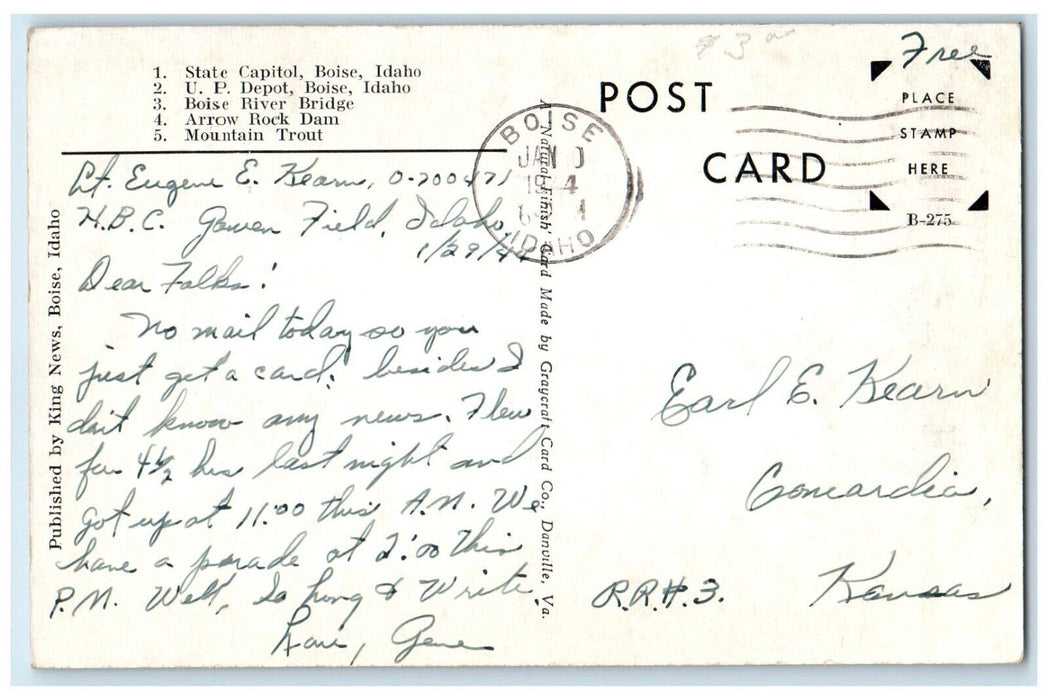 1. State Capitol, Boise, Idaho
2. U. P. Depot, Boise, Idaho
3. Boise River Bridge
4. Arrow Rock Dam
5. Mountain Trout
Lt. Eugene E. Kearn, O-700471
H.B.C. Gowen Field, Idaho,
1/29/44
Dear Folks:
No mail today so you
just get a card; besides I
don't know any news. Flew
for 4½ hrs last night and
got up at 11:00 this A.M. We
have a parade at 2:00 this
P.M. Well, So long & Write.
Love, Gene
Published by King News, Boise, Idaho
A 'Natural Finish' Card Made by Graycraft Card Co., Danville, Va.
POST
CARD
BOISE
JAN
IDAHO
Free
PLACE
STAMP
HERE
B-275
Earl E. Kearn
Concordia,
R.R.#.3. Kansas